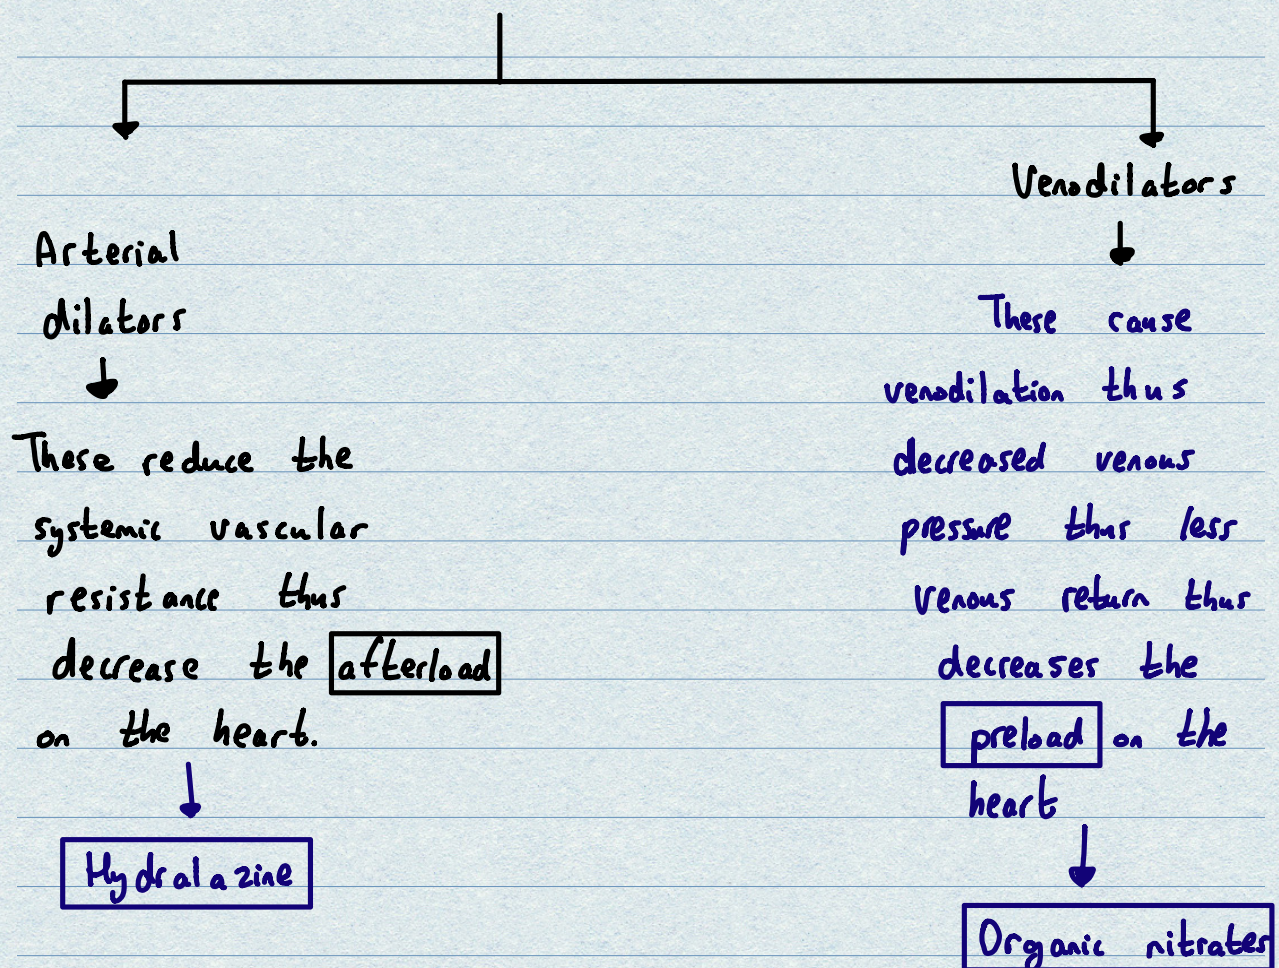 Arterial
dilators
These reduce the
systemic vascular
resistance thus
decrease the afterload
on the heart.
Hydralazine
Venodilators
These cause
venodilation thus
decreased venous
pressure thus less
venous return thus
decreases the
preload on the
heart
Organic nitrates